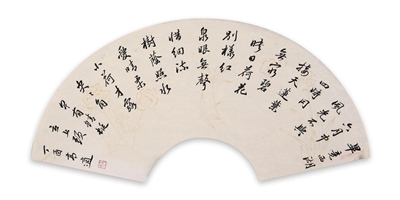 畢竟西湖
六月中
風光不與
四時同
接天蓮葉
無窮碧
映日荷花
別樣紅
泉眼無聲
惜細流
樹蔭照水
愛晴柔
小荷才露
尖尖角
早有蜻蜓
立上頭
丁酉